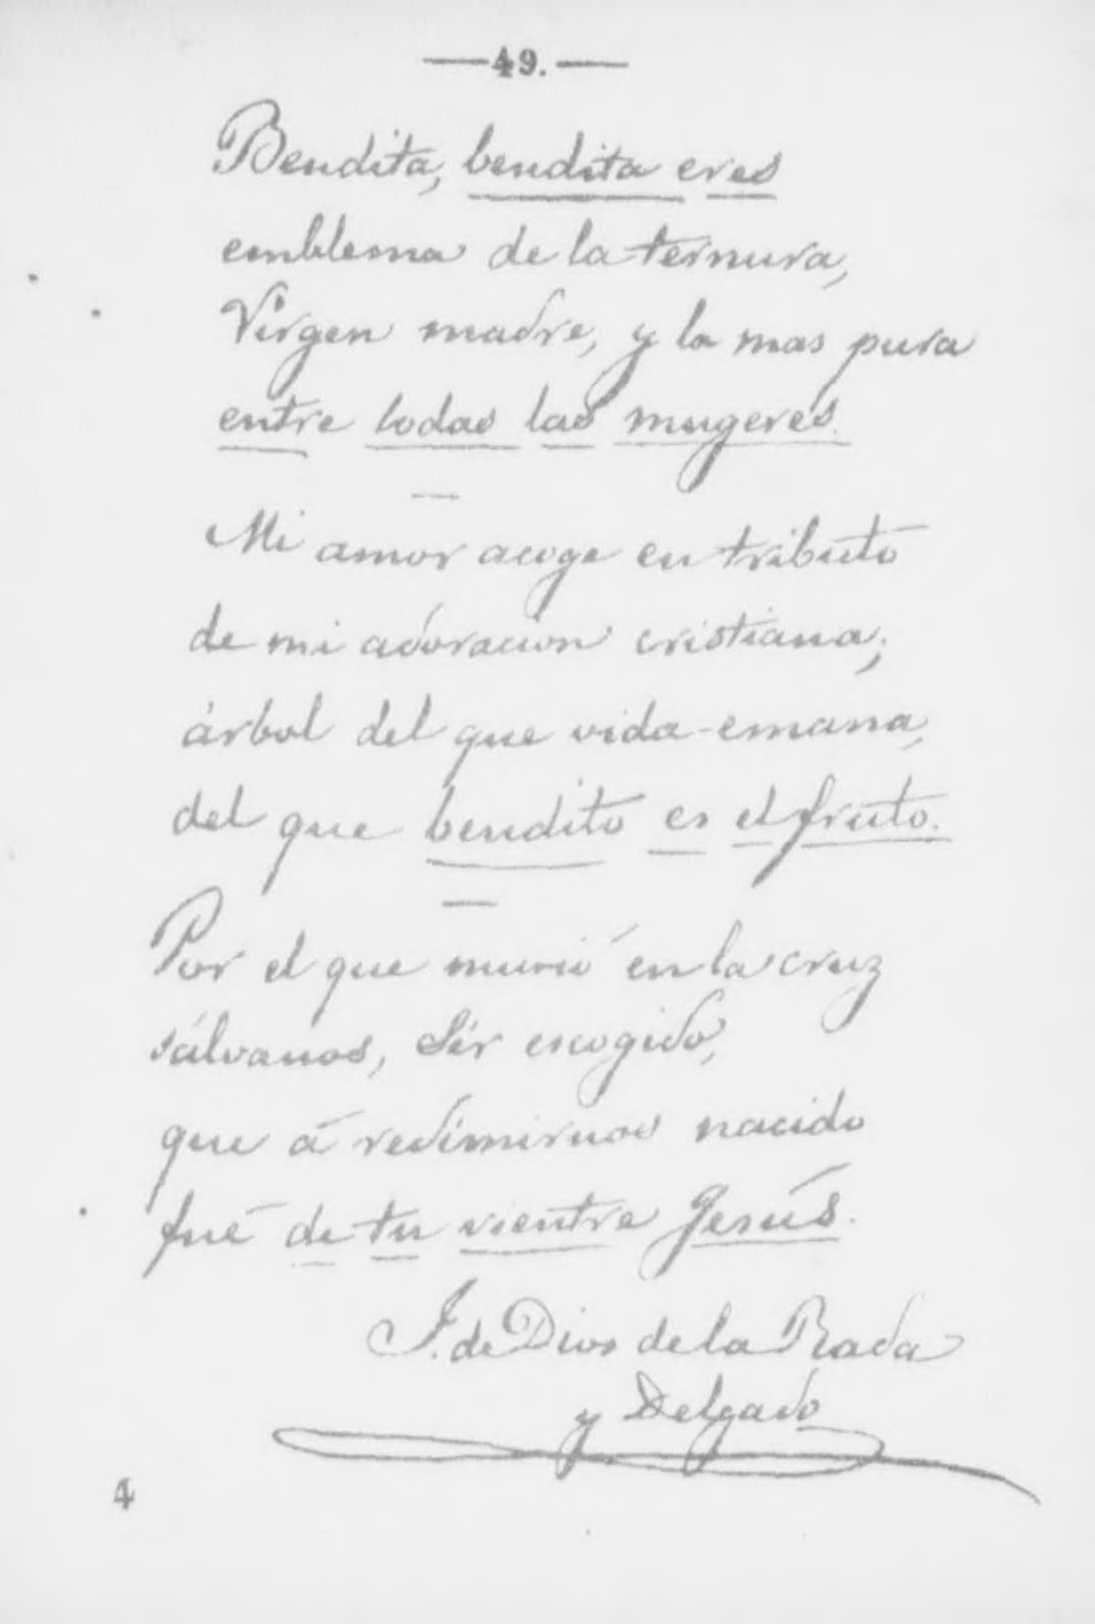 —49.—
Bendita, bendita eres
emblema de la ternura,
Virgen madre, y la mas pura
entre todas las mugeres.
—
Mi amor acoge en tributo
de mi adoracion cristiana;
árbol del que vida emana,
del que bendito es el fruto.
—
Por el que murió en la cruz
sálvanos, Sér escogido,
que á redimirnos nacido
fué de tu vientre Jesús.
J. de Dios de la Rada
y Delgado
4